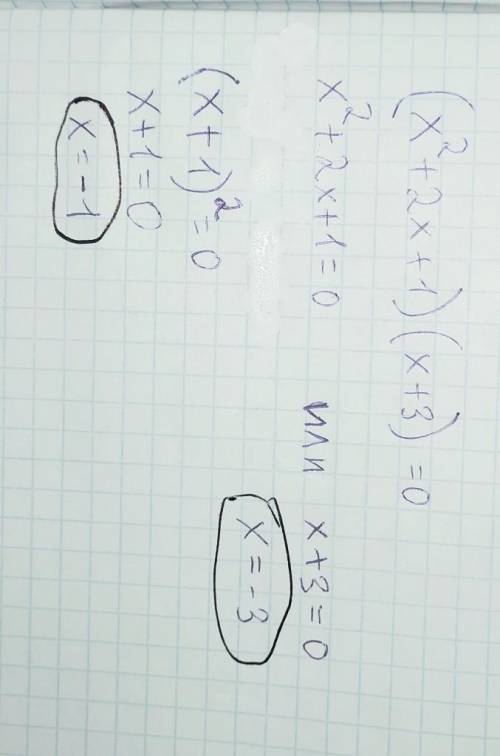 (x²+2x+1)(x+3)=0
x²+2x+1=0 или x+3=0
(x+1)²=0 x=-3
x+1=0
x=-1